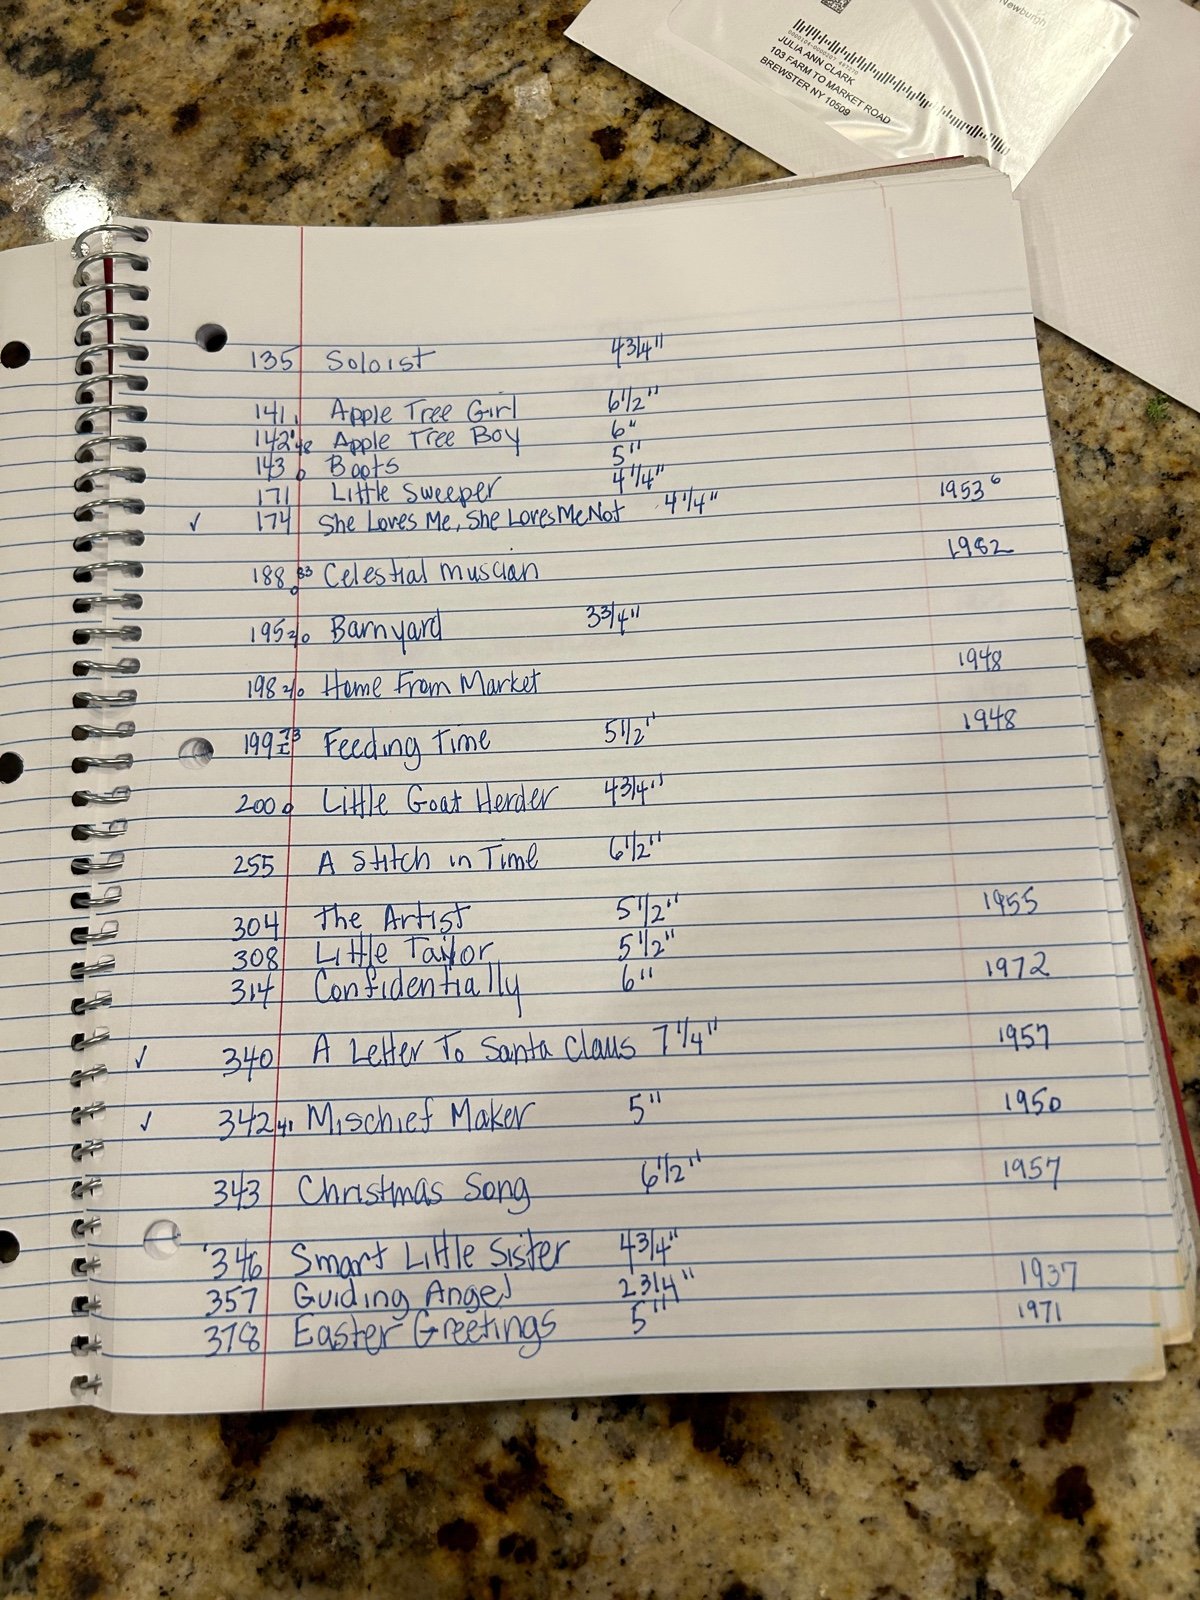 Newburgh
JULIA ANN CLARK
103 FARM TO MARKET ROAD
BREWSTER NY 10509
135 Soloist 4 3/4"
141 Apple Tree Girl 6 1/2"
142 Apple Tree Boy 6"
143 0 Boots 5"
171 Little Sweeper 4 1/4"
✓ 174 She Loves Me, She Loves Me Not 4 1/4" 1953
188 0 83 Celestial Muscian 1982
195 2/0 Barnyard 3 3/4"
198 2/0 Home From Market 1948
199 I 73 Feeding Time 5 1/2" 1948
200 0 Little Goat Herder 4 3/4"
255 A Stitch in Time 6 1/2"
304 The Artist 5 1/2" 1955
308 Little Tailor 5 1/2"
314 Confidentially 6" 1972
✓ 340 A Letter To Santa Claus 7 1/4" 1957
✓ 342 4/1 Mischief Maker 5" 1950
343 Christmas Song 6 1/2" 1957
346 Smart Little Sister 4 3/4"
357 Guiding Angel 2 3/4" 1937
378 Easter Greetings 5" 1971